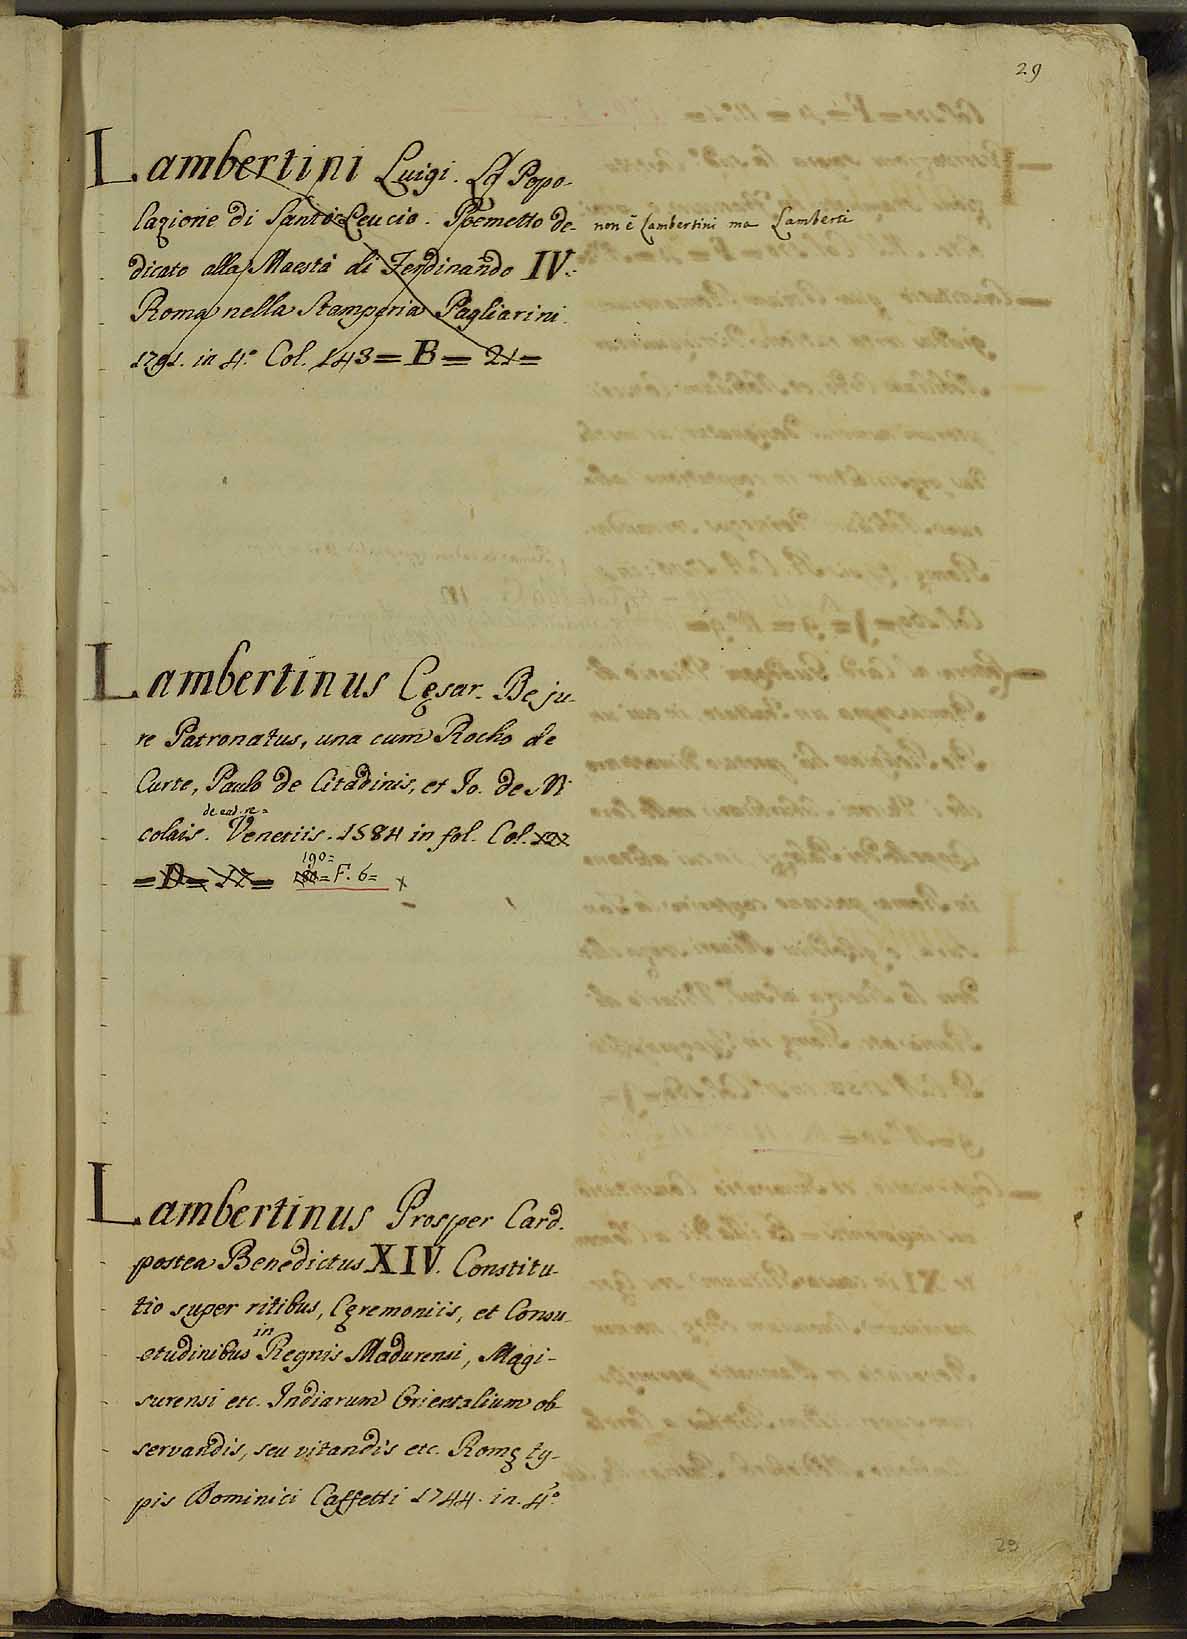 29
Lambertini Luigi. La Popo-
lazione di Santo Leucio. Poemetto de-
non è Lambertini ma Lamberti
dicato alla Maestà di Ferdinando IV.
Roma nella Stamperia Pagliarini.
1791. in 4.° Col. 143 = B = 21 =
Lambertinus Cęsar. De ju-
re Patronatus, una cum Rocho de
Curte, Paulo de Citadinis, et Jo. de Ni
colais. de ead. re = Venetiis. 1584 in fol. Col. 122
= D = 17 = 190 = F. 6 = x
Lambertinus Prosper Card.
postea Benedictus XIV. Constitu-
tio super ritibus, Cęremoniis, et Consu-
etudinibus in Regnis Madurensi, Magi-
surensi etc. Indiarum Orientalium ob-
servandis, seu vitandis etc. Romę ty-
pis Dominici Caffetti 1744. in. 4.°
29